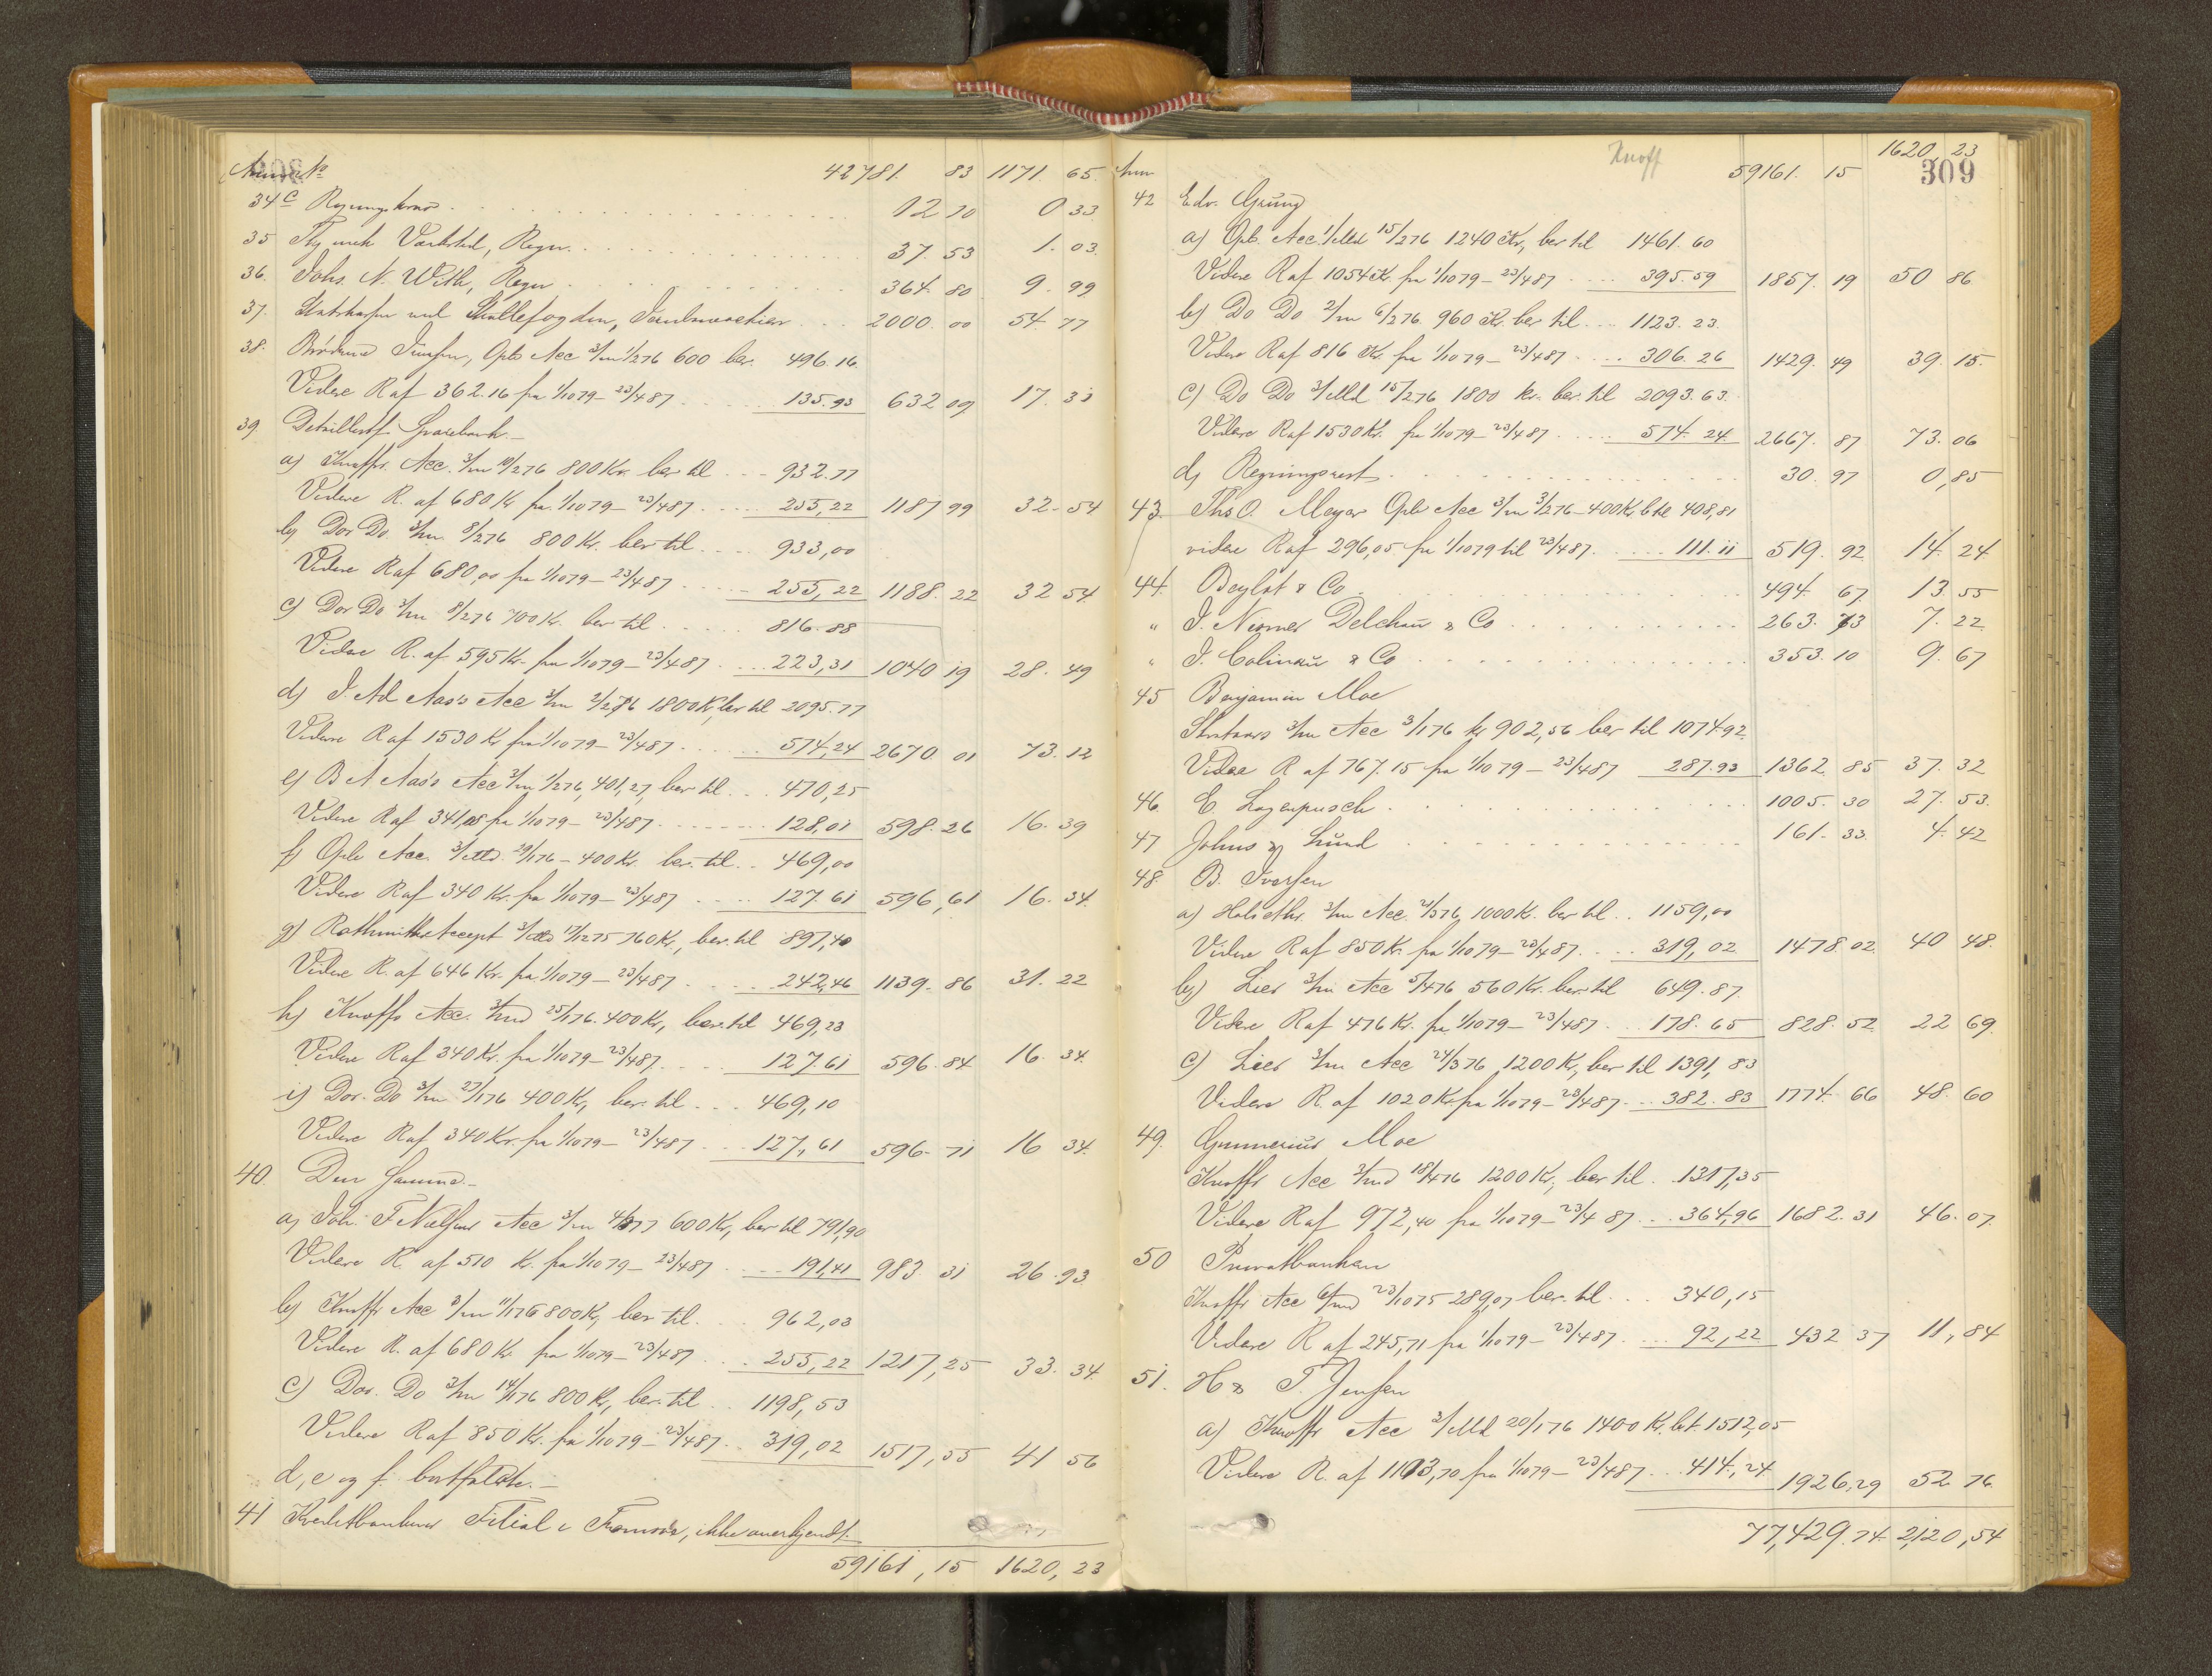 308
Anm No 42781. 83 1171. 65.
34c Regningskrav 12 10 0 33
35 mek Værksted, Regn. 37. 53 1. 03.
36. Johs. N. With, Regn 364. 80 9. 99
37. Statskassen ved 2000. 00 54. 77
38. Brødrene Opb Acc 3/m 1/276 600 ber. 496.16.
Videre R af 362.16 fra 1/1079 - 23/487 135.93 632 09 17. 31
39 Sparebank.
a) Knoffs. Acc. 3/m 10/276 800 Kr. ber til 932.77
Videre R. af 680 Kr fra 1/1079 - 23/487 255,22 1187 99 32-54
b) Dos Do. 3/m. 8/276 800 Kr. ber til 933,00
Videre R af 680,00 fra 1/1079 - 23/487 255,22 1188. 22 32 54.
c) Dos Do 3/m 8/276 700 Kr. ber til 816.88
Videre R. af 595 Kr. fra 1/1079 - 23/487 223,31 1040 19 28. 49
d) J. Ad. Aas's Acc 3/m 2/276 1800 Kr, ber til 2095.77
Videre R af 1530 Kr fra 1/1079 - 23/487 574,24 2670 01 73. 12
e) B A Aas's Acc 3/m 1/276, 401,27, ber til 470,25
Videre R af 341,08 fra 1/1079 - 23/487 128,01 598. 26 16. 39
f) Opb Acc. 3/Md. 29/176 - 400 Kr. ber. til 469,00
Videre R af 340 Kr. fra 1/1079 - 23/487 127.61 596,61 16. 34.
g) Accept 3/Md 17/1275 760 Kr., ber. til 897,40
Videre R. af 646 Kr. fra 1/1079 - 23/487 242,46 1139. 86 31. 22
h) Knoffs Acc. 3/md 25/176. 400 Kr, ber. til 469,23
Videre R af 340 Kr. fra 1/1079 - 23/487 127.61 596. 84 16. 34.
i) Dos. Do 3/m 27/176 400 Kr, ber. til 469,10
Videre R af 340 Kr. fra 1/1079 - 23/487 127,61 596- 71 16 34.
40. Den Samme.
a) Joh. F Nielsens Acc 3/m 600 Kr, ber til 791,90
Videre R. af 510 Kr. fra 1/1079 - 23/487 191,41 983 31 26. 93
b) Knoffs Acc 3/m 11/176 800 Kr, ber til 962,03
Videre R. af 680 Kr. fra 1/1079 - 23/487 255,22 1217,25 33. 34.
c) Dos. Do 3/m 14/176 800 Kr, ber. til 1198,53
Videre R af 850 Kr. fra 1/1079 - 23/487 319,02 1517,55 41 56
d, e og f. bortfaldt.
41 Kreditbankens Filial i Tromsø, ikke anerkjendt.
59161, 15 1620, 23
Knoff
309
Anm 59161. 15 1620, 23
42 Edv. Grüng
a) Opb. Acc. 1/Md 15/276 1240 Kr, ber til 1461.60
Videre R af 1054 Kr. fra 1/1079 - 23/487 395.59 1857. 19 50 86.
b) Do Do 2/m 6/276. 960 Kr. ber til 1123. 23.
Videre R af 816 Kr. fra 1/1079 - 23/487 306. 26 1429. 49 39. 15.
c) Do Do 3/Md 15/276 1800 Kr. ber. til 2093. 63.
Videre R af 1530 Kr. fra 1/1079 - 23/487 574. 24. 2667. 87 73. 06
d) Regningsrest 30. 97 0,85
43. Ths O. Meyer Opb Acc 3/m 3/276 - 400 Kr b til 408,81
videre R af 296,05 fra 1/1079 til 23/487. 111. 11 519. 92 14. 24
44. Beylot & Co 494. 67. 13. 55
" Delchau & Co 263. 73 7. 22
" J. Calineau & Co 353. 10 9. 67
45 Benjamin Moe
3/m Acc 3/176 kr 902,56 ber til 1074.92.
Videre R af 767.15 fra 1/1079 - 23/487 287.93 1362. 85 37. 32
46. C. Lagerpusch 1005. 30 27. 53.
47 Johns & Lund 161- 33. 4. 42
48. B. Iversen
a) 3/m Acc. 21/376 1000 K. ber til 1159,00
Videre R af 850 Kr. fra 1/1079 - 23/487. 319, 02 1478. 02. 40 48.
b) Lies 3/m Acc 5/476 560 Kr. ber. til 649. 87.
Videre R af 476 Kr. fra 1/1079 - 23/487. 178. 65 828. 52 22 69.
c) Lies 3/m Acc 24/376 1200 Kr, ber til 1391, 83
Videre R. af 1020 Kr. fra 1/1079 - 23/487 382. 83 1774. 66 48. 60
49. Gunnerius Moe
Knoffs Acc 3/md 18/476 1200 Kr, ber til 1317,35
Videre R af 972,40 fra 1/1079 - 23/4 87 364,96 1682. 31 46. 07.
50 Privatbanken
Knoffs Acc 6/md 23/1075 289,07 ber. til 340,15
Videre R af 245,71 fra 1/1079 - 23/487. 92,22 432 37 11, 84
51. H & T. Jensen
a) Knoffs Acc 3/Md 20/176 1400 Kr. b.t. 1512,05
Videre R. af 1103,70 fra 1/1079 - 23/487 414,24 1926,29 52 76.
77,429.74. 2,120,54